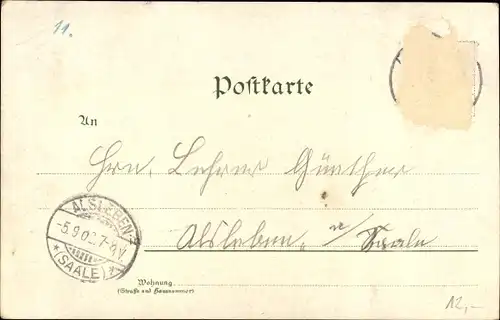 11.
Postkarte
An
Hrn. Lehrer Günther
ALSLEBEN
-5.9.0 7-8V
*(SAALE)*
Alsleben a/ Saale
Wohnung
(Straße und Hausnummer)
12,-